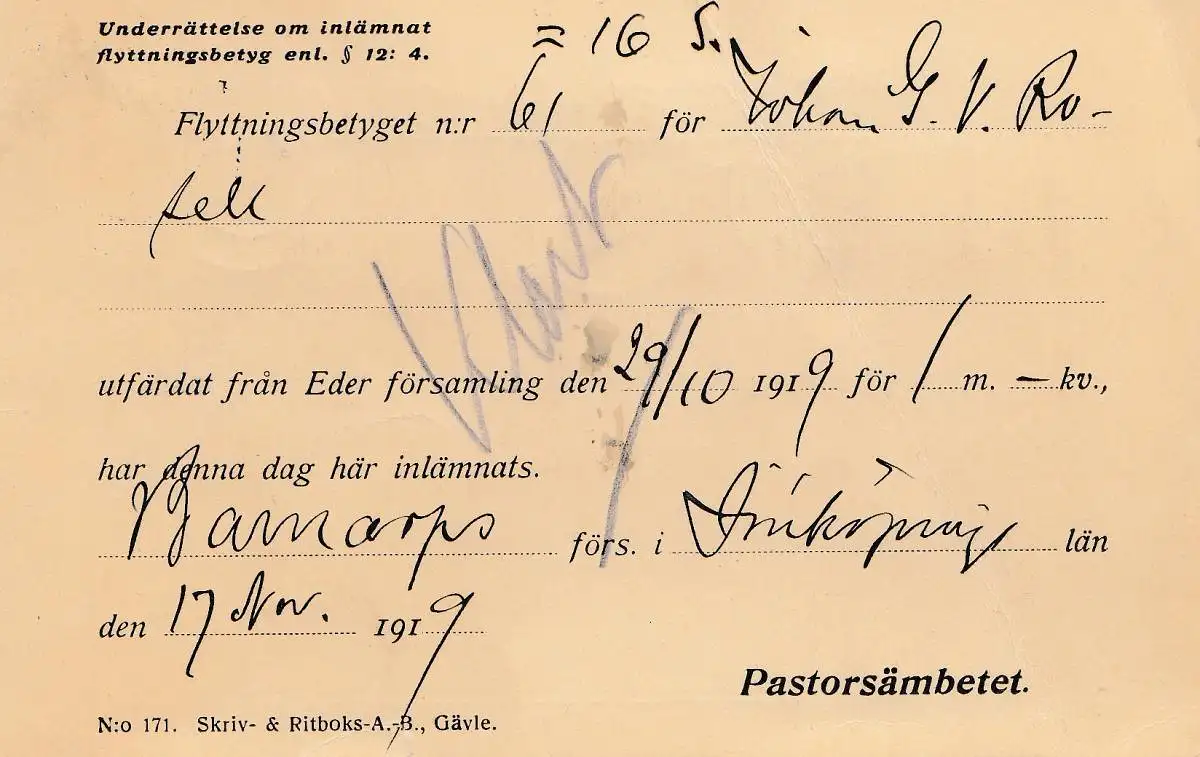 Underrättelse om inlämnat
flyttningsbetyg enl. § 12: 4.
= 16 S.
Flyttningsbetyget n:r 61 för Johan G. V. Ro-
sell
Klart
utfärdat från Eder församling den 29/10 1919 för 1 m. — kv.,
har denna dag här inlämnats.
Barnarps förs. i Jönköpings län
den 17 Nov. 1919
Pastorsämbetet.
N:o 171. Skriv- & Ritboks-A.-B., Gävle.